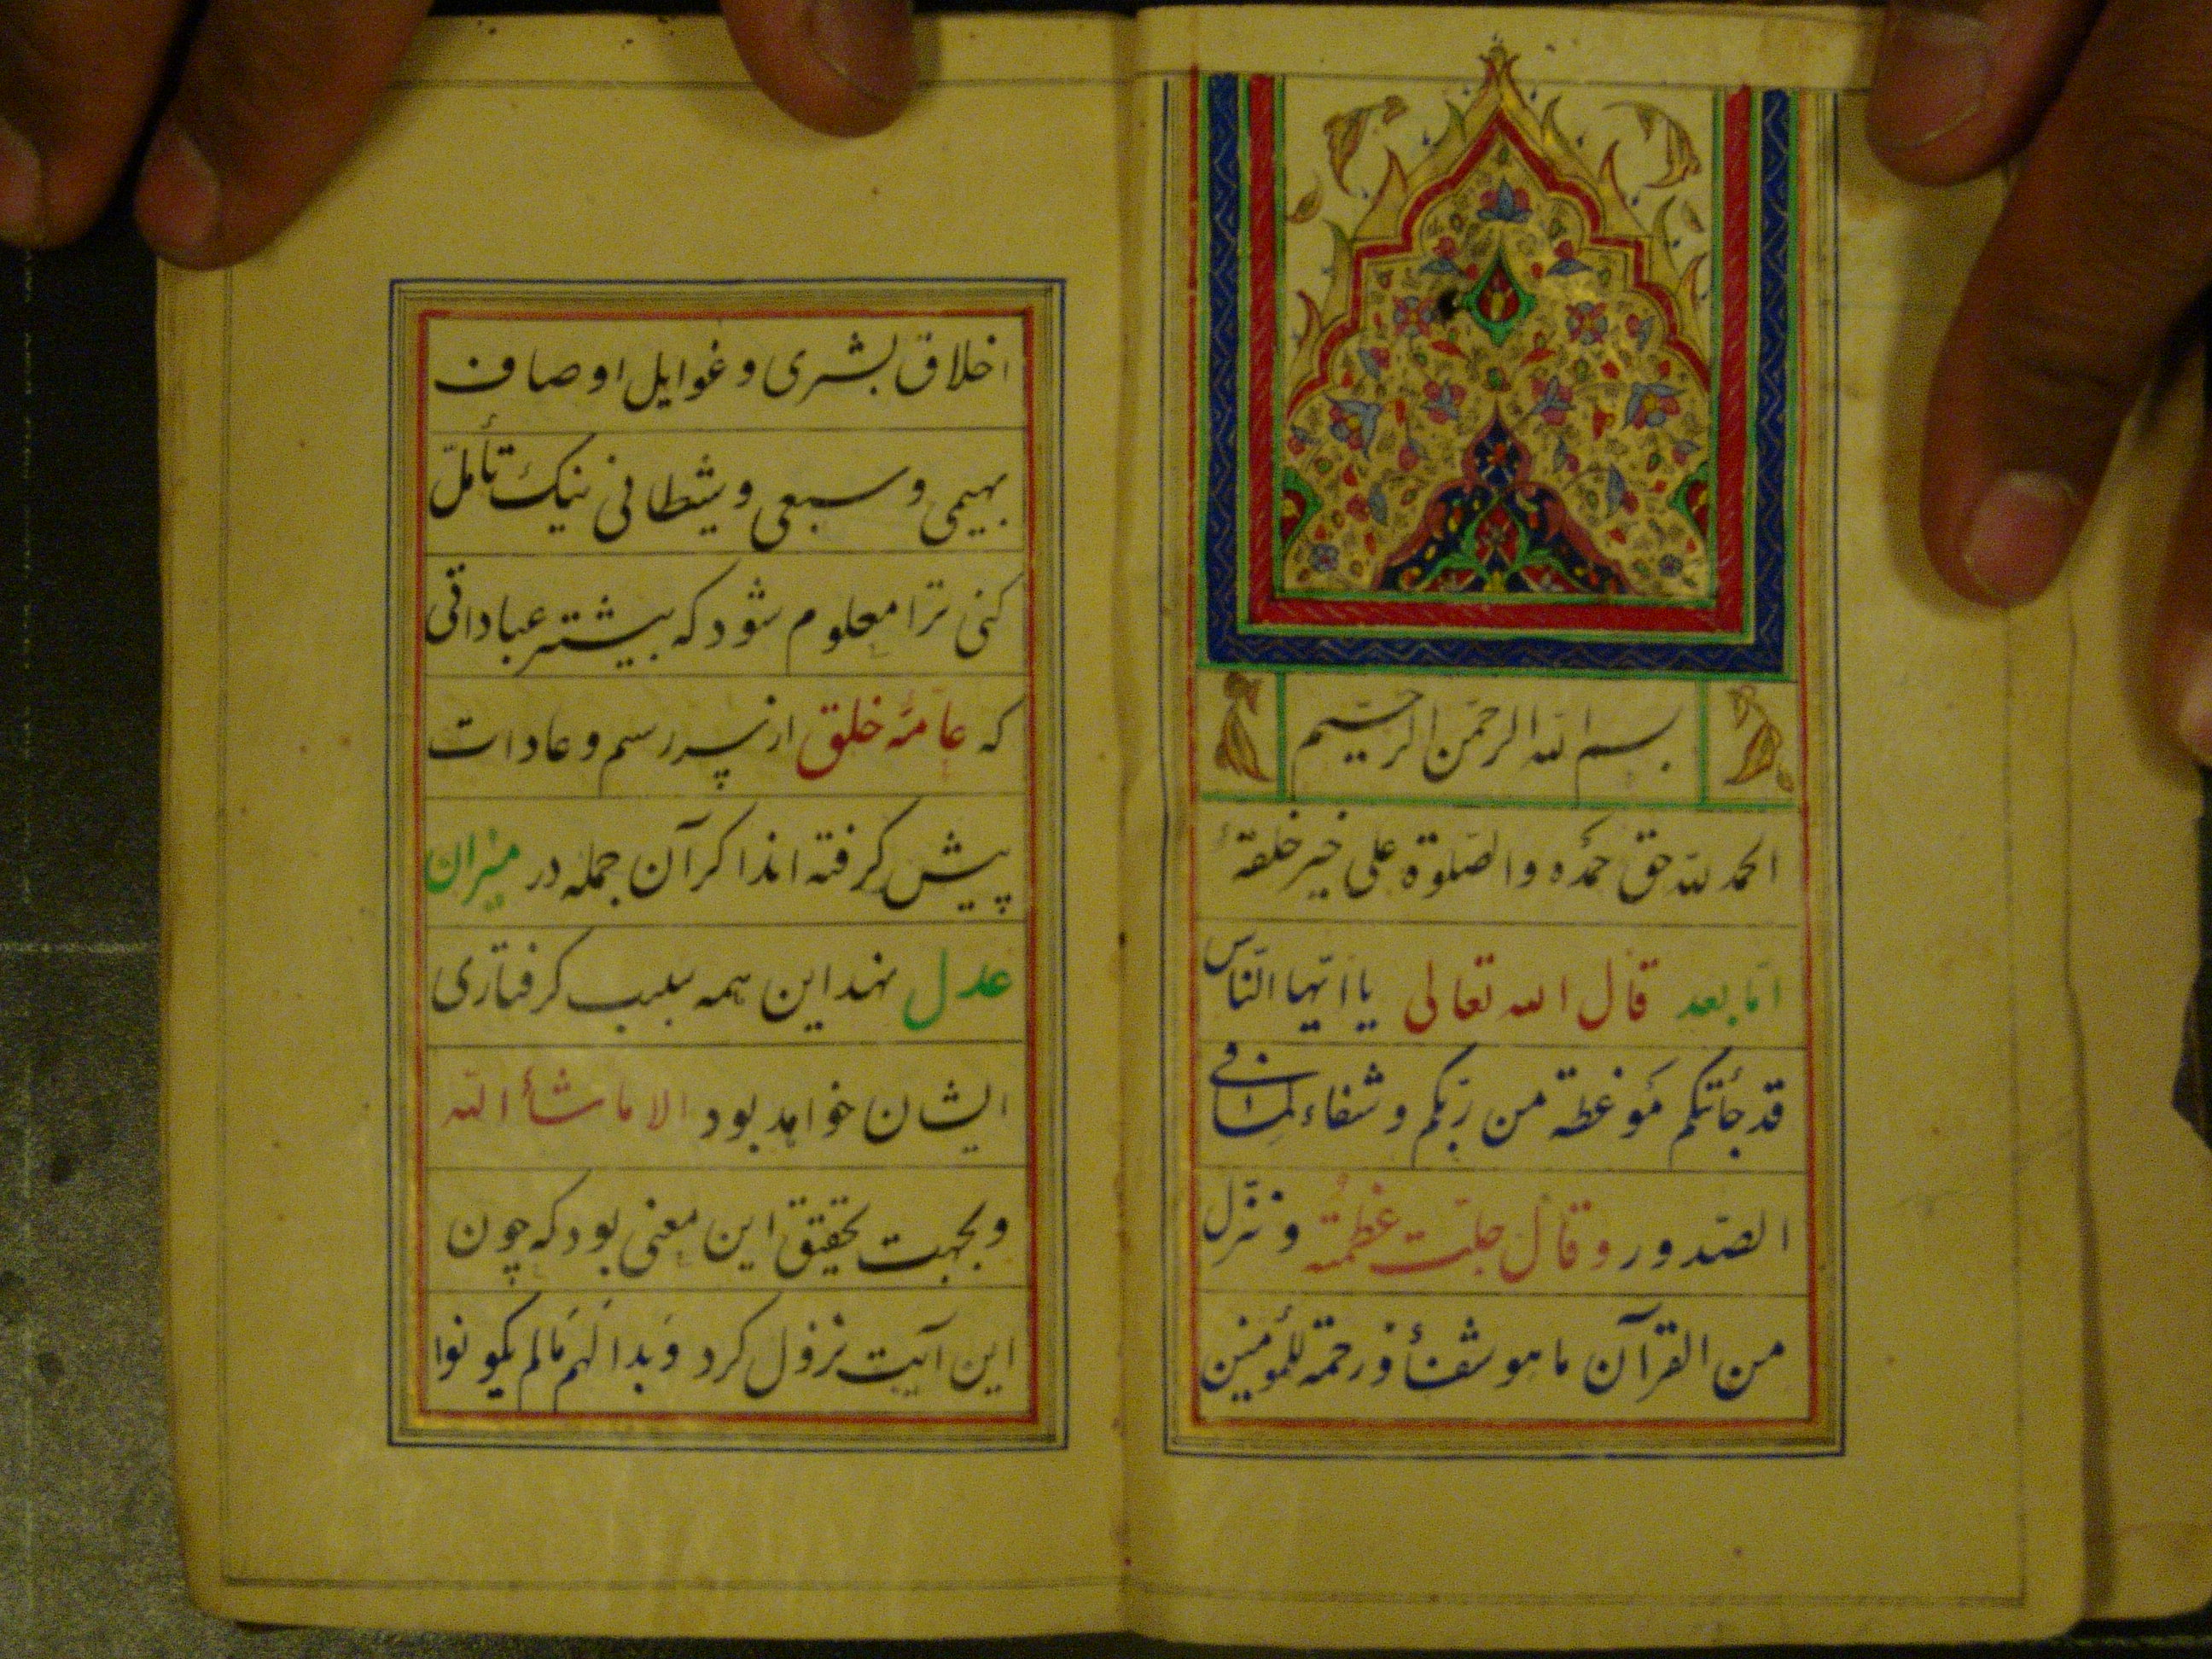 بسم الله الرحمن الرحیم
الحمد لله حق حمده والصلوة علی خیر خلقه
اما بعد قال الله تعالی یا ایها الناس
قد جأتکم موعظة من ربکم وشفاء لما فی
الصدور وقال جلت عظمته وننزل
من القرآن ما هو شفأ ورحمة للمؤمنین
اخلاق بشری و غوایل اوصاف
بهیمی و سبعی و شیطانی نیک تأمل
کنی ترا معلوم شود که بیشتر عباداتی
که عامهٔ خلق از سر رسم و عادات
پیش کرفته اند اکر آن جمله در میزان
عدل نهند این همه سبب کرفتاری
ایشان خواهد بود الا ماشأ الله
و بجهت تحقیق این معنی بود که چون
این آیت نزول کرد و بدا لهم مالم یکونوا